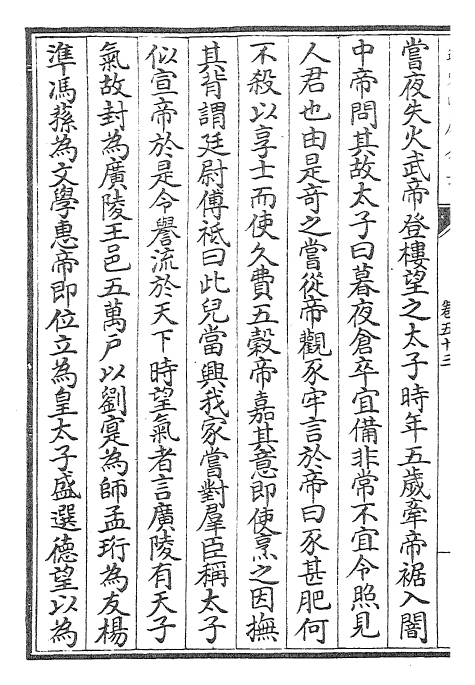 嘗夜失火武帝登樓望之太子時年五歲牽帝裾入闇
中帝問其故太子曰暮夜倉卒宜備非常不宜令照見
人君也由是奇之嘗從帝觀豕牢言於帝曰豕甚肥何
不殺以享士而使久費五穀帝嘉其意即使烹之因撫
其背謂廷尉傅祗曰此兒當興我家嘗對羣臣稱太子
似宣帝於是令譽流於天下時望氣者言廣陵有天子
氣故封為廣陵王邑五萬戶以劉寔為師孟珩為友楊
準馮蓀為文學惠帝即位立為皇太子盛選德望以為
卷五十三